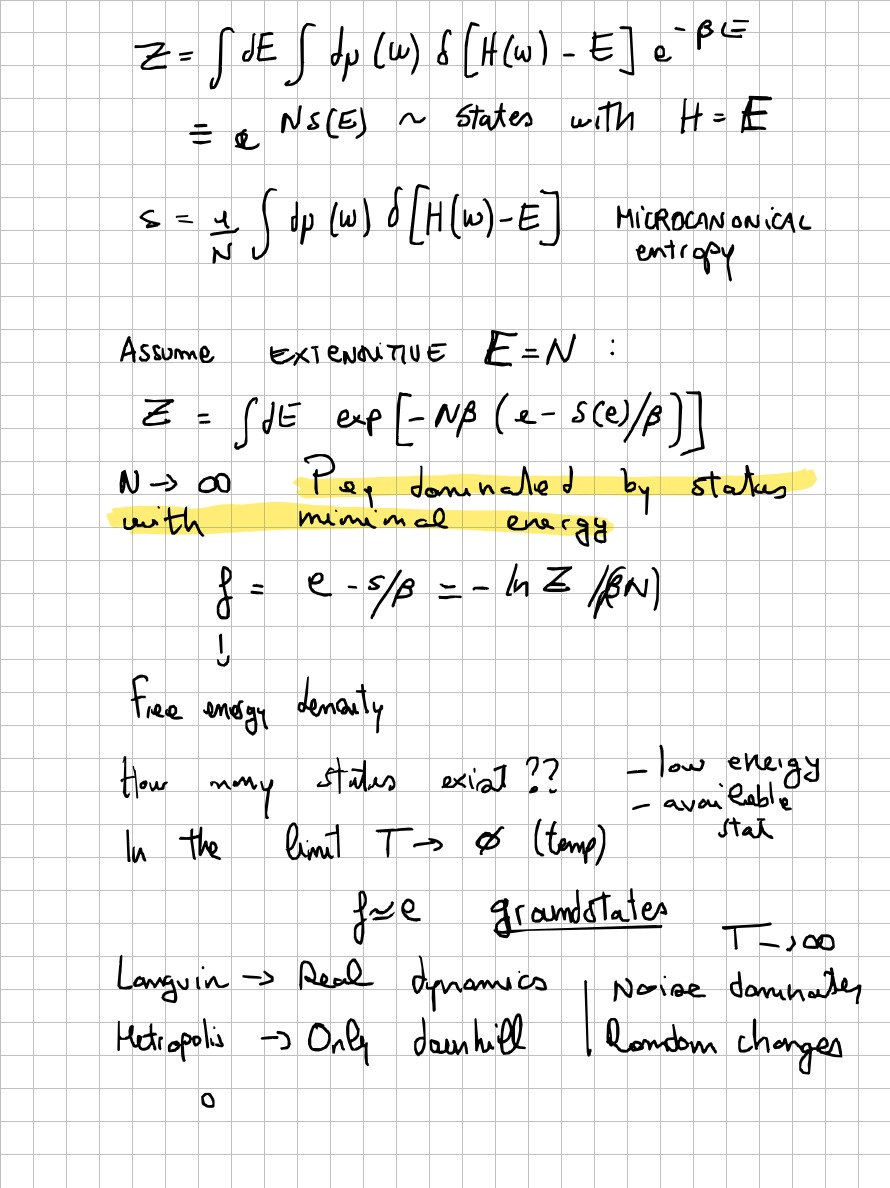 Z = ∫ dE ∫ dμ (w) δ [H(w) - E] e^{-βE}
≡ e^{NS(E)} ~ states with H = E
s = 1/N ∫ dμ (w) δ[H(w)-E] MICROCANONICAL
entropy
Assume EXTENSITIVE E = N :
Z = ∫dE exp [-Nβ (e - s(e)/β)]
N → ∞ Peq dominated by states
with minimal energy
f = e - s/β = - ln Z /(βN)
↓
Free energy density
How many states exist ?? - low energy
- available
stat
In the limit T → ø (temp)
f ≈ e groundstates
T → ∞
Languin → Real dynamics | Noise dominates
Metropolis → Only downhill | Random changes